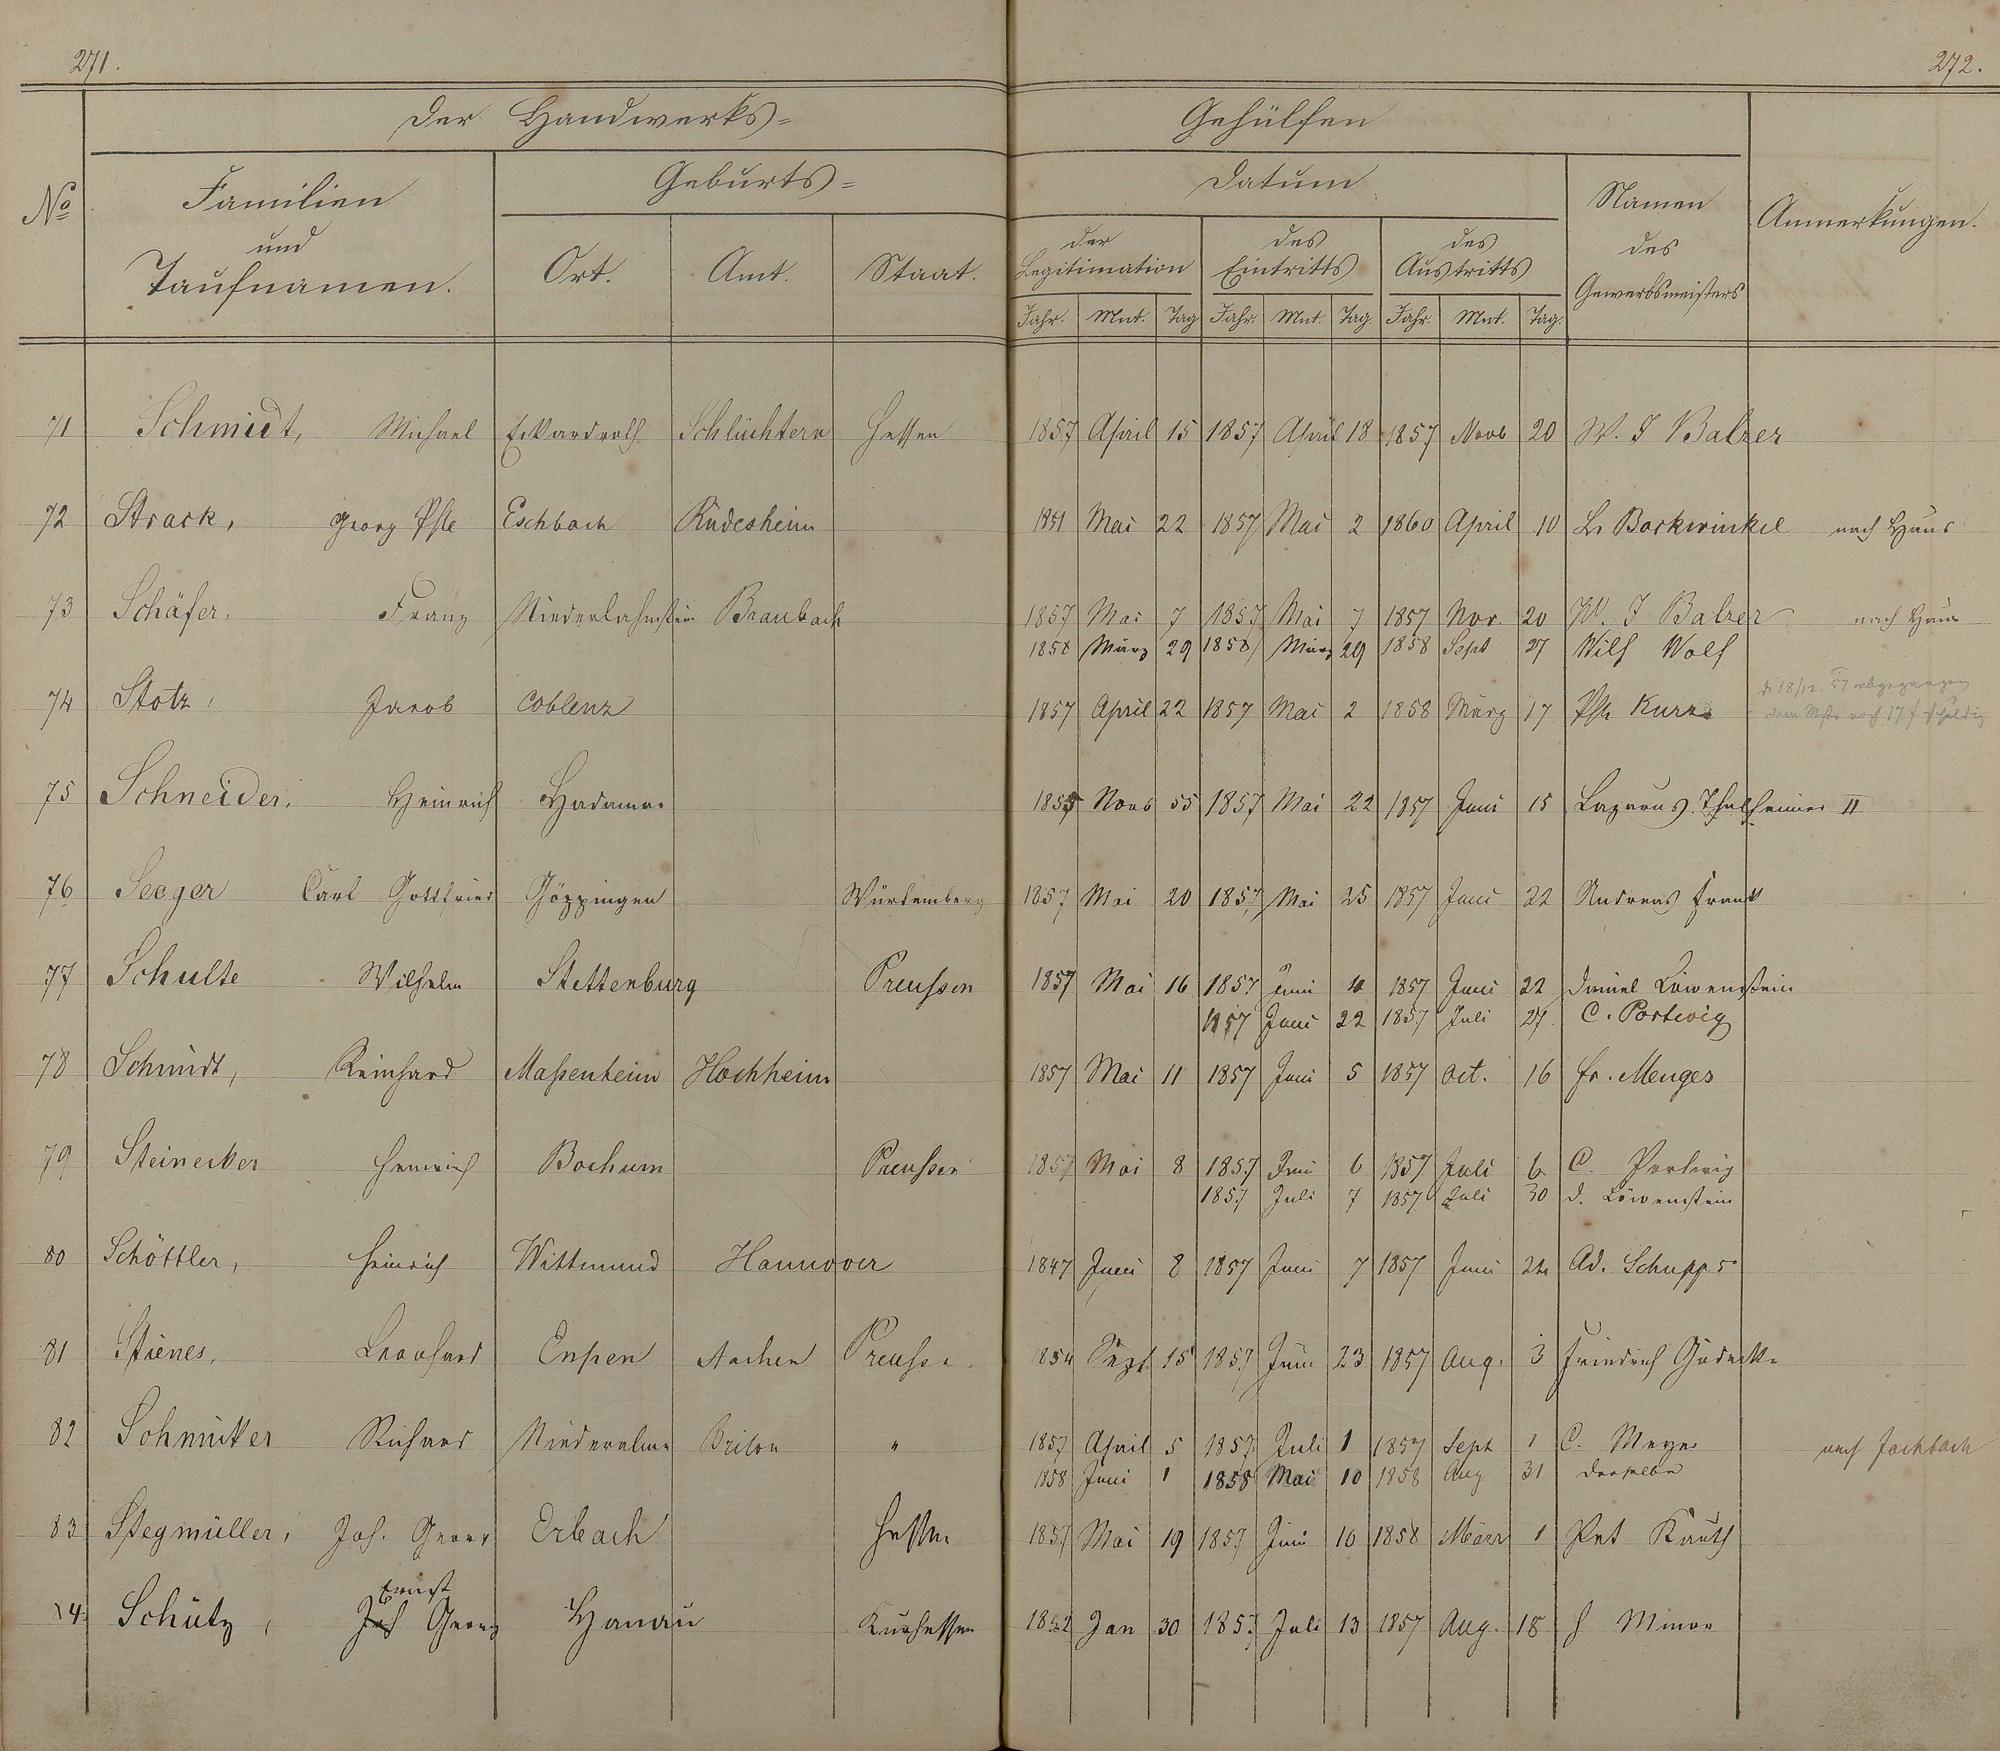 271.
272.
Der Handwerks= Gehülfen
No
Familien
und
Taufnamen.
Geburts=
Ort. Amt. Staat.
Datum
der
Legitimation
des
Eintritts
des
Austritts
Jahr. Mnt. Tag Jahr. Mnt. Tag. Jahr. Mnt. Tag.
Namen
des
Gewerbsmeisters
Anmerkungen.
71 Schmidt, Michael Schlüchtern Hessen 1857 April 15 1857 April 18 1857 Novb 20 W. J Balzer
72 Strack, Georg Phle Eschbach Rüdesheim 1851 Mai 22 1857 Mai 2 1860 April 10 Bockwinkel nach Haus
73 Schäfer, Franz Niederlahnstein Braubach 1857 Mai 7 1857 Mai 7 1857 Nov. 20 W. J Balzer nach Haus
1858 März 29 1858 März 29 1858 Sept 27 Wilh Wolf
74 Stotz, Jacob Coblenz 1857 April 22 1857 Mai 2 1858 März 17 Kurz
d 18/12. 57 abgegangen
dem Mstr noch 17 f schuldig
75 Schneider, Heinrich Hadamar Novb 1857 Mai 22 1857 Juni 15 Lazarus Thalheimer II
76 Seeger Carl Gottfried Göppingen Würtemberg 1857 Mai 20 1857 Mai 25 1857 Juni 22 Andreas Frank
77 Schulte Wilhelm Stettenburg Preussen 1857 Mai 16 1857 Juni 4 1857 Juni 22 Daniel Löwenstein
1857 Juni 22 1857 Juli 27 C. Portwig
78 Schmidt, Reinhard Massenheim Hochheim 1857 Mai 11 1857 Juni 5 1857 Oct. 16 Fr. Menges
79 Steinecker Heinrich Bochum Preussen 1857 Mai 8 1857 Juni 6 1857 Juli 6 C. Portwig
1857 Juli 7 1857 Juli 30 D. Löwenstein
80 Schöttler, Heinrich Wittmund Hannover 1847 Juni 8 1857 Juni 7 1857 Juni Ad. Schupps
81 Stienes, Leonhard Eupen Aachen Preussen 1854 Sept 15 1857 Juni 23 1857 Aug. 3 Friedrich Gödecke
82 Schmücker Richard Brilon " 1857 April 5 1857 Juli 1 1857 Sept 1 C. Meyer nach
1858 Juni 1 1858 Mai 10 1858 Aug 31 derselbe
83 Stegmüller, Joh. Georg Erbach Hessen 1857 Mai 19 1857 Juni 10 1858 März 1 Pet Kauth
Ernst
84. Schütz, Joh Georg Hanau Kurhessen 1852 Jan 30 1857 Juli 13 1857 Aug. 18 H Minor